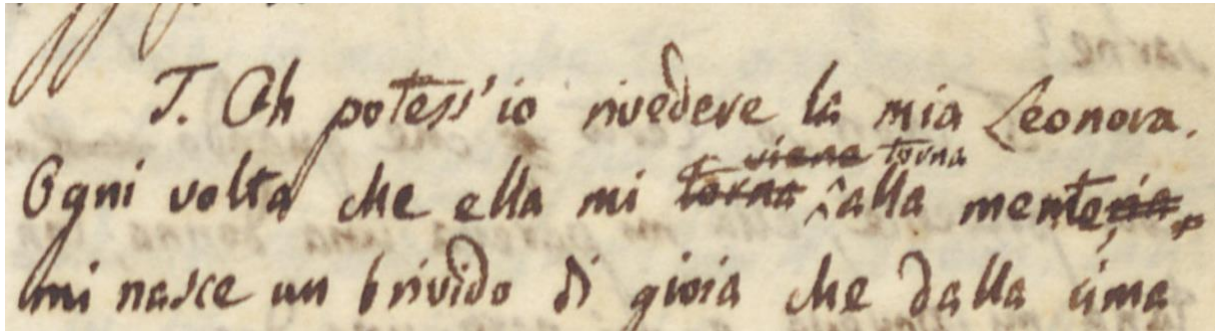 T. Oh potess'io rivedere la mia Leonora.
viene torna
Ogni volta che ella mi torna alla mente,
mi nasce un brivido di gioia che dalla cima